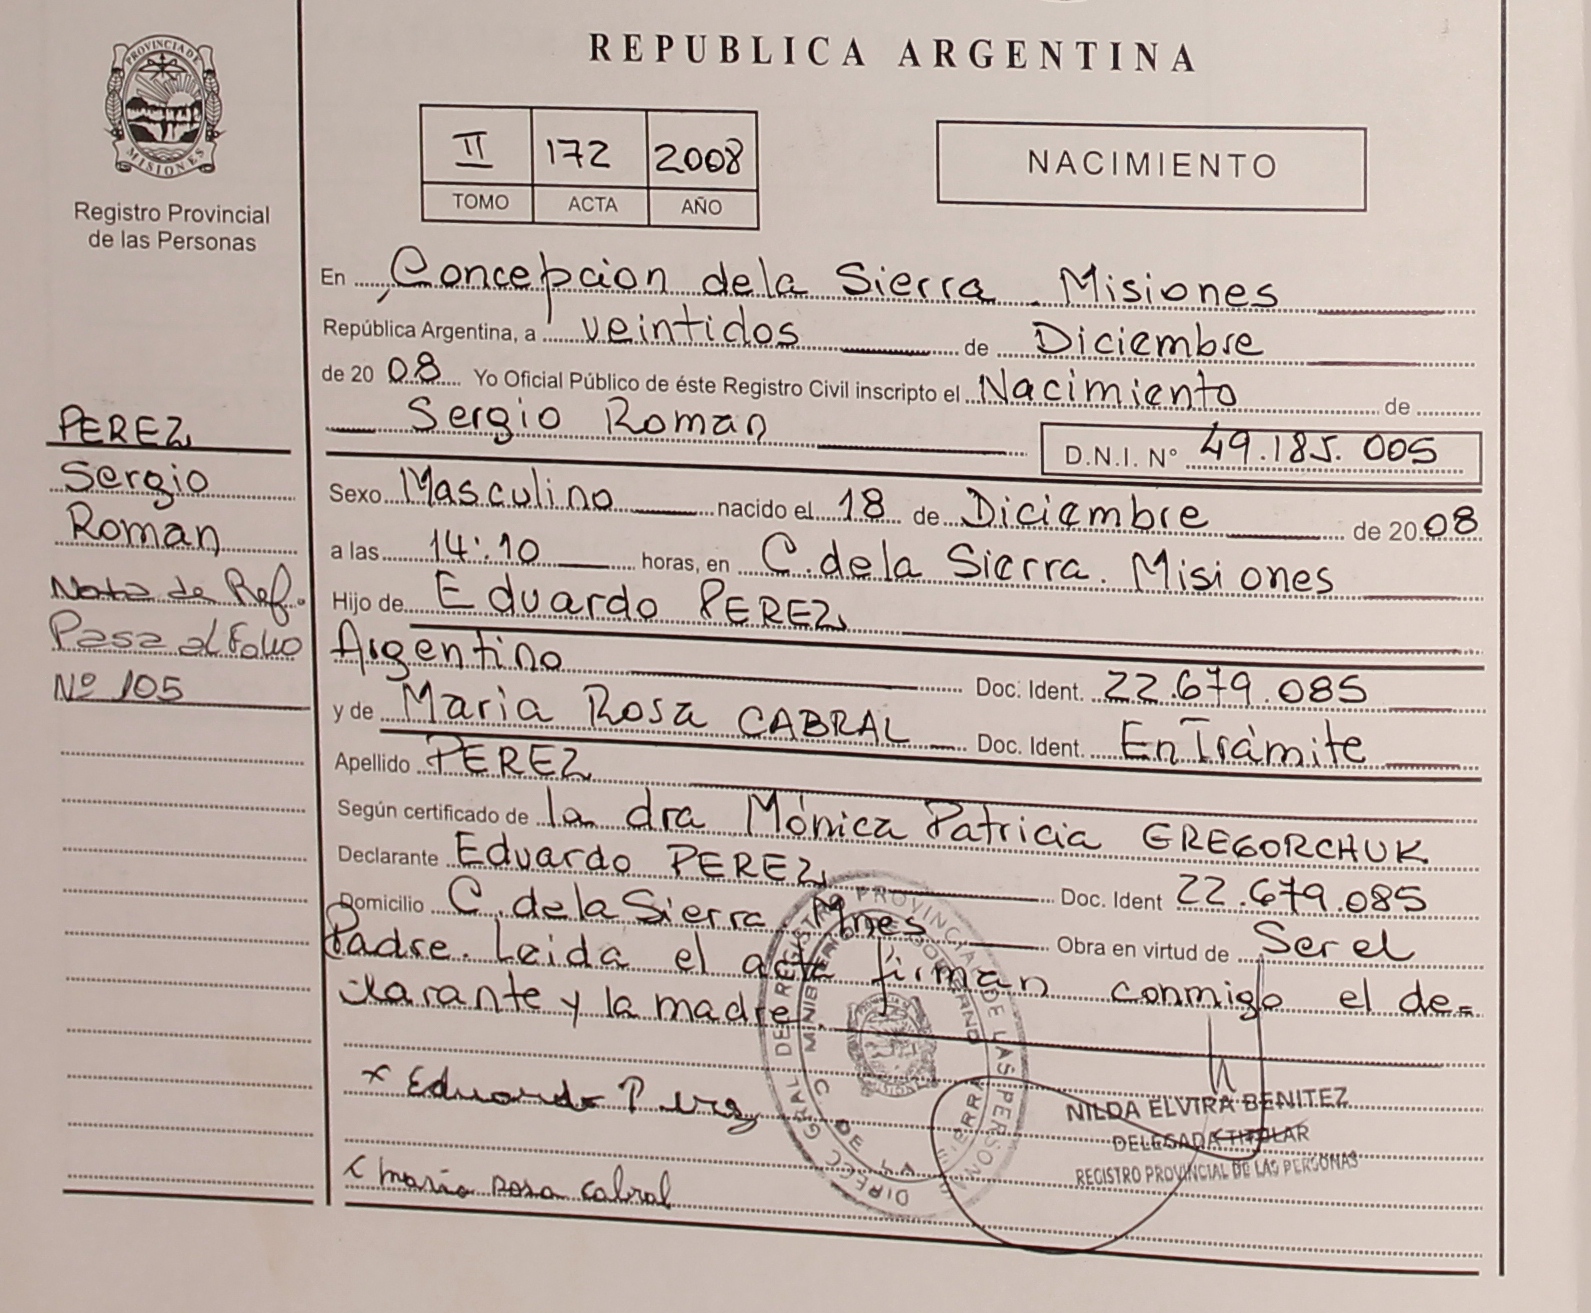 REPUBLICA ARGENTINA
PROVINCIA DE
MISIONES
Registro Provincial
de las Personas
II 172 2008
TOMO ACTA AÑO
NACIMIENTO
En Concepcion de la Sierra - Misiones
República Argentina, a veintidos de Diciembre
de 2008 Yo Oficial Público de éste Registro Civil inscripto el Nacimiento de
Sergio Roman D.N.I. Nº 49.185.005
Sexo Masculino nacido el 18 de Diciembre de 2008
a las 14:10 horas, en C. de la Sierra. Misiones
Hijo de Eduardo PEREZ
Argentino Doc. Ident. 22.679.085
y de Maria Rosa CABRAL Doc. Ident. En Trámite
Apellido PEREZ
Según certificado de la dra Mónica Patricia GREGORCHUK
Declarante Eduardo PEREZ Doc. Ident 22.679.085
Domicilio C. de la Sierra Mnes Obra en virtud de Ser el
Padre. Leida el acta firman conmigo el de=
clarante y la madre
x Eduardo Perez
x maria rosa cabral
NILDA ELVIRA BENITEZ
DELEGADA TITULAR
REGISTRO PROVINCIAL DE LAS PERSONAS
PEREZ
Sergio
Roman
Nota de Ref.
Pasa al Folio
Nº 105
DIRECC GRAL DE REGISTRO PROVINCIAL DE LAS PERSONAS